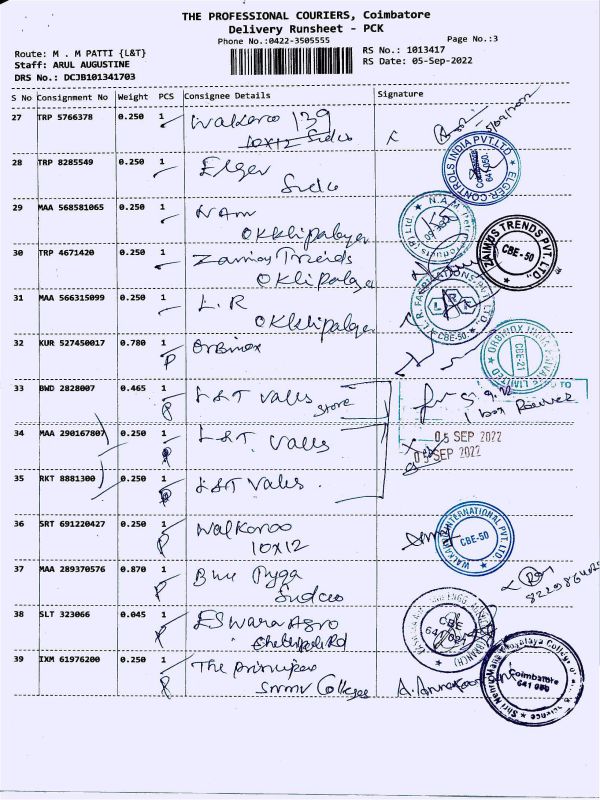 THE PROFESSIONAL COURIERS, Coimbatore
Delivery Runsheet - PCK
Phone No.:0422-3505555
Page No.:3
Route: M . M PATTI {L&T}
Staff: ARUL AUGUSTINE
DRS No.: DCJB101341703
RS No.: 1013417
RS Date: 05-Sep-2022
S No Consignment No Weight PCS Consignee Details Signature
27 TRP 5766378 0.250 1 Walkaroo 139
10x12 Sidco
28 TRP 8285549 0.250 1 Elger
Sidco
ELGER CONTROLS INDIA PVT LTD
29 MAA 568581065 0.250 1 NAM
OKkilipalayer
N.A.M.
30 TRP 4671420 0.250 1 Trends
OKlipalayer
ZAIMOS TRENDS PVT. LTD.,
CBE - 50
31 MAA 566315099 0.250 1 L.R
OKkilipalayer
L.R. FABRICATIONS
CBE-50
32 KUR 527450017 0.780 1 Orbinox
ORBINOX INDIA PRIVATE LIMITED
CBE-21
33 BWD 2828007 0.465 1 L&T Valves
Store
1 box Received
34 MAA 290167807 0.250 1 L&T Valves
05 SEP 2022
05 SEP 2022
35 RKT 8881300 0.250 1 L&T Valves
36 SRT 691220427 0.250 1 Walkaroo
10x12
WALKAROO INTERNATIONAL PVT. LTD.
CBE-50
37 MAA 289370576 0.870 1 Blue
Sidco
38 SLT 323066 0.045 1 ESwara Agro
Rd
CBE
39 IXM 61976200 0.250 1 The
Snmv College
Coimbatore
641 050